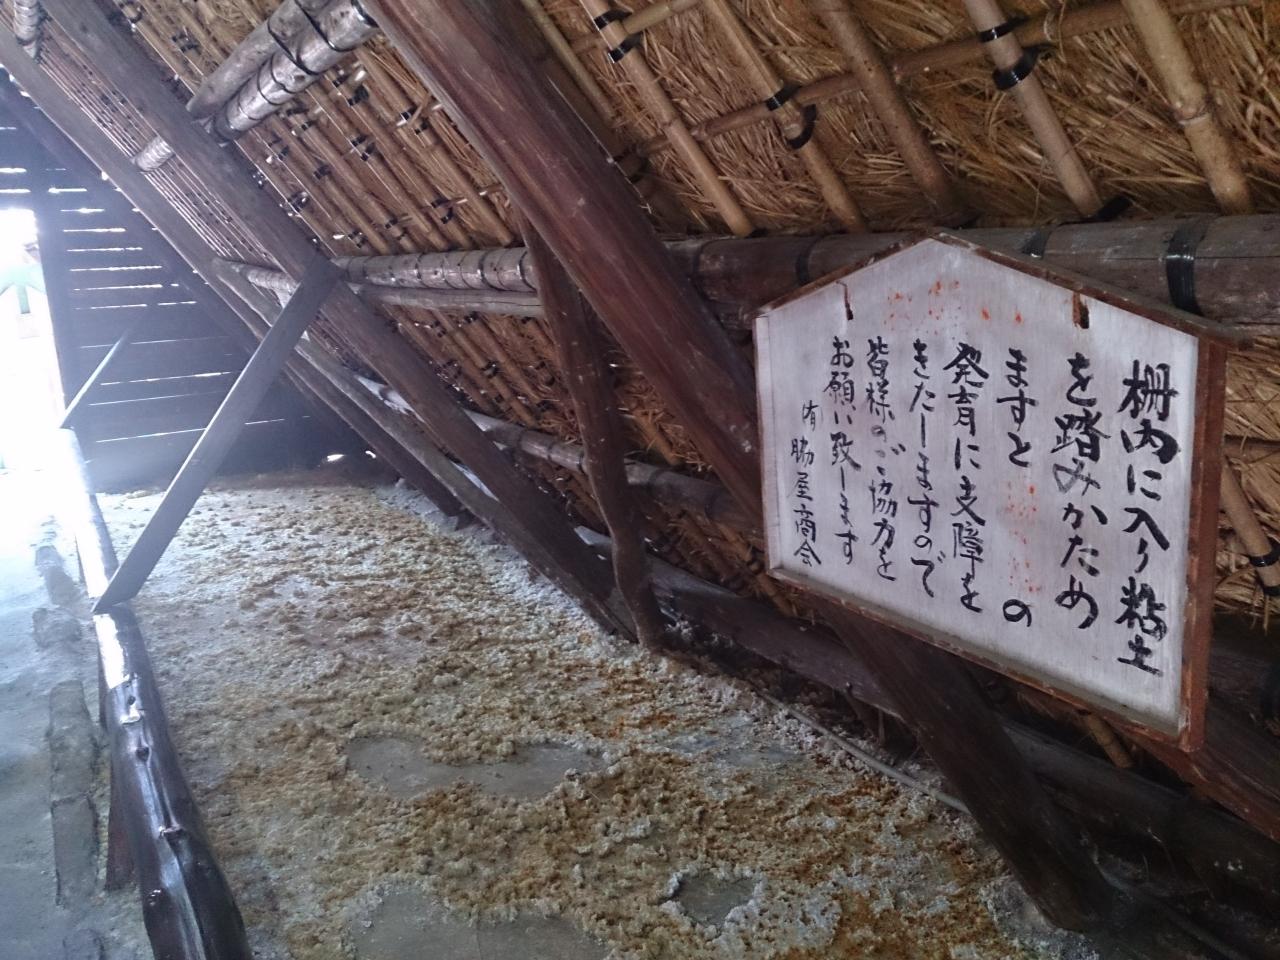 柵内に入り粘土
を踏みかため
ますと の
発育に支障を
きたしますので
皆様のご協力を
お願い致します
㈲脇屋商会